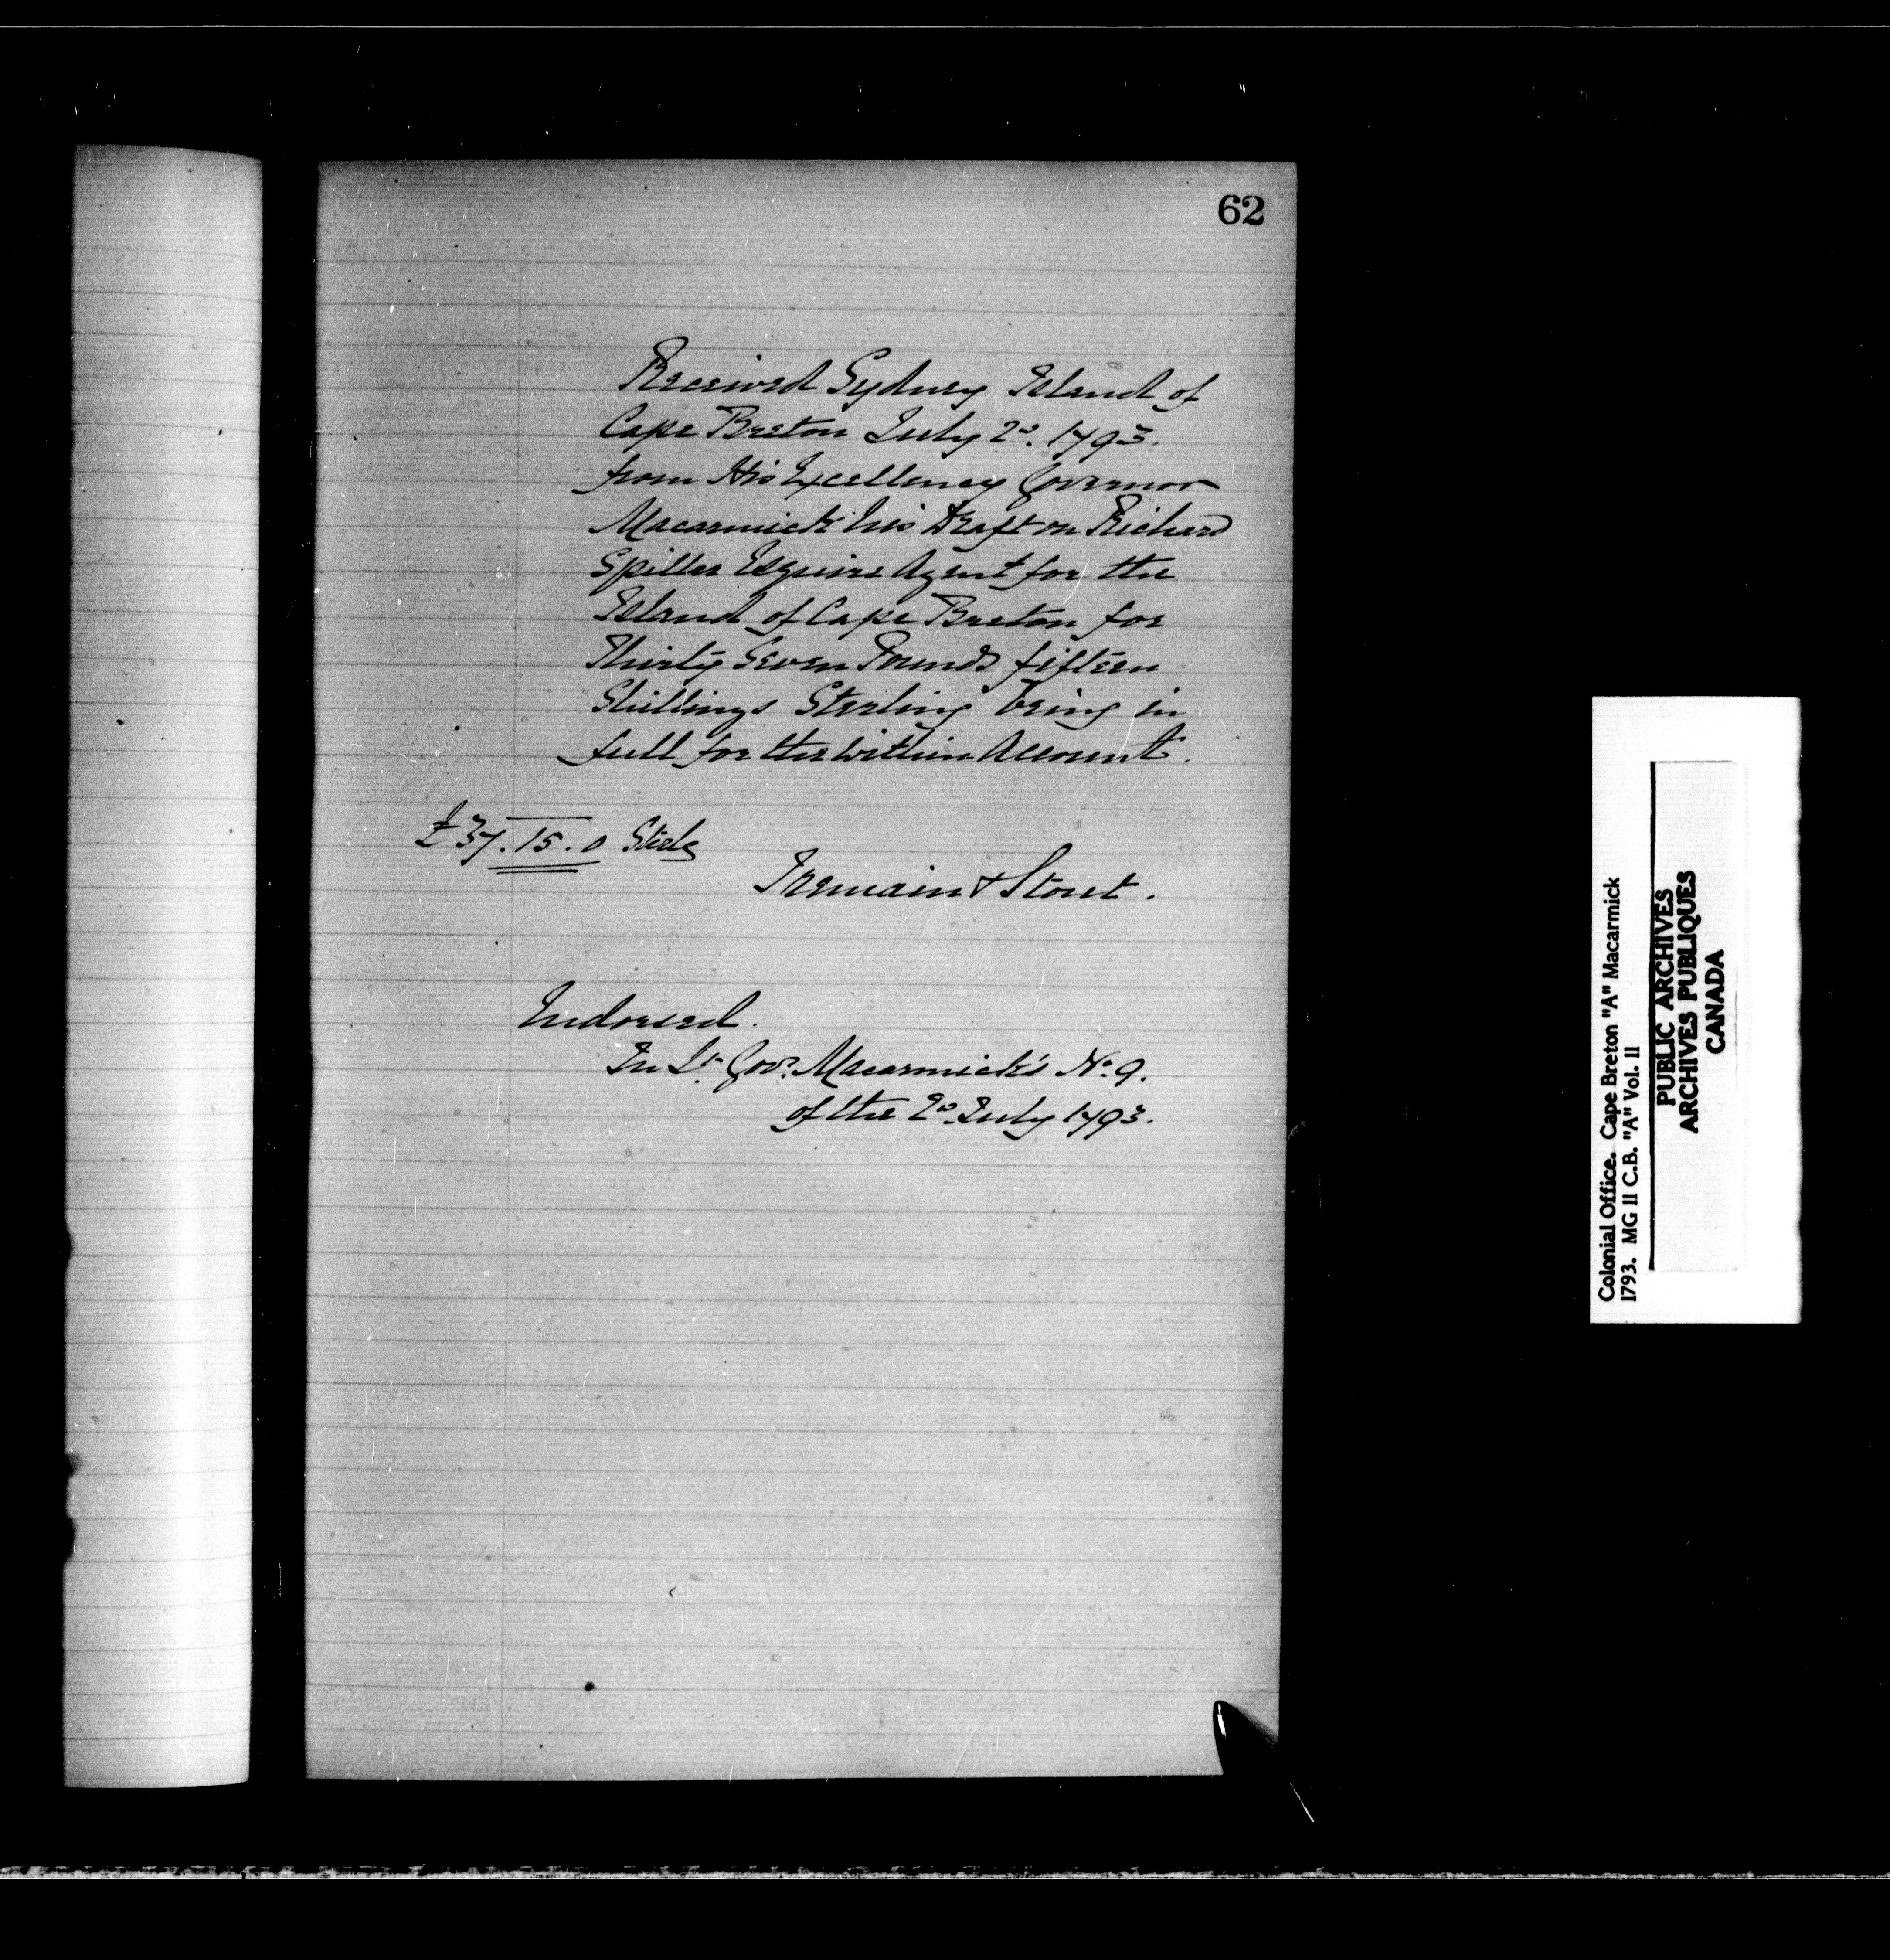 62
Received Sydney Island of
Cape Breton July 2d. 1793.
from His Excellency Governor
Macarmick his Draft on Richard
Spiller Esquire Agent for the
Island of Cape Breton for
Thirty Seven Pounds fifteen
Shillings Sterling being in
full for the within Account.
£37.15.0 Sterlg
Tremain & Stout.
Indorsed.
In Lt. Govr. Macarmick's No. 9.
of the 2d. July 1793.
Colonial Office. Cape Breton "A" Macarmick
1793. MG 11 C.B. "A" Vol. 11
PUBLIC ARCHIVES
ARCHIVES PUBLIQUES
CANADA